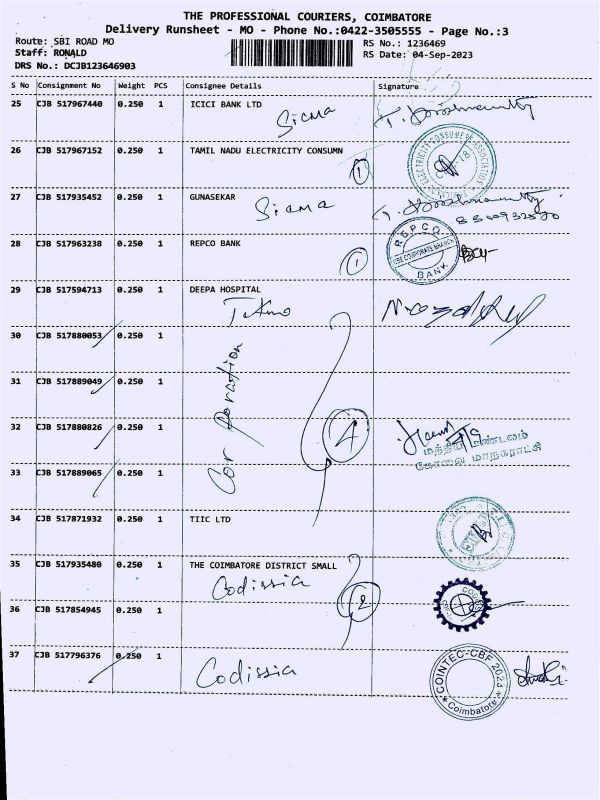 THE PROFESSIONAL COURIERS, COIMBATORE
Delivery Runsheet - MO - Phone No.:0422-3505555 - Page No.:3
Route: SBI ROAD MO RS No.: 1236469
Staff: RONALD RS Date: 04-Sep-2023
DRS No.: DCJB123646903
S No Consignment No Weight PCS Consignee Details Signature
25 CJB 517967440 0.250 1 ICICI BANK LTD
Sigma
26 CJB 517967152 0.250 1 TAMIL NADU ELECTRICITY CONSUMN
1
27 CJB 517935452 0.250 1 GUNASEKAR
Sigma
28 CJB 517963238 0.250 1 REPCO BANK
1
REPCO BANK
CBE CORPORATE BRANCH
29 CJB 517594713 0.250 1 DEEPA HOSPITAL
30 CJB 517880053 0.250 1
31 CJB 517889049 0.250 1
Corporation
32 CJB 517880826 0.250 1
4
மத்திய மண்டலம்
கோவை மாநகராட்சி
33 CJB 517889065 0.250 1
34 CJB 517871932 0.250 1 TIIC LTD
35 CJB 517935480 0.250 1 THE COIMBATORE DISTRICT SMALL
Codissia
2
36 CJB 517854945 0.250 1
37 CJB 517796376 0.250 1
Codissia
COINTEC-CBF 2023
Coimbatore